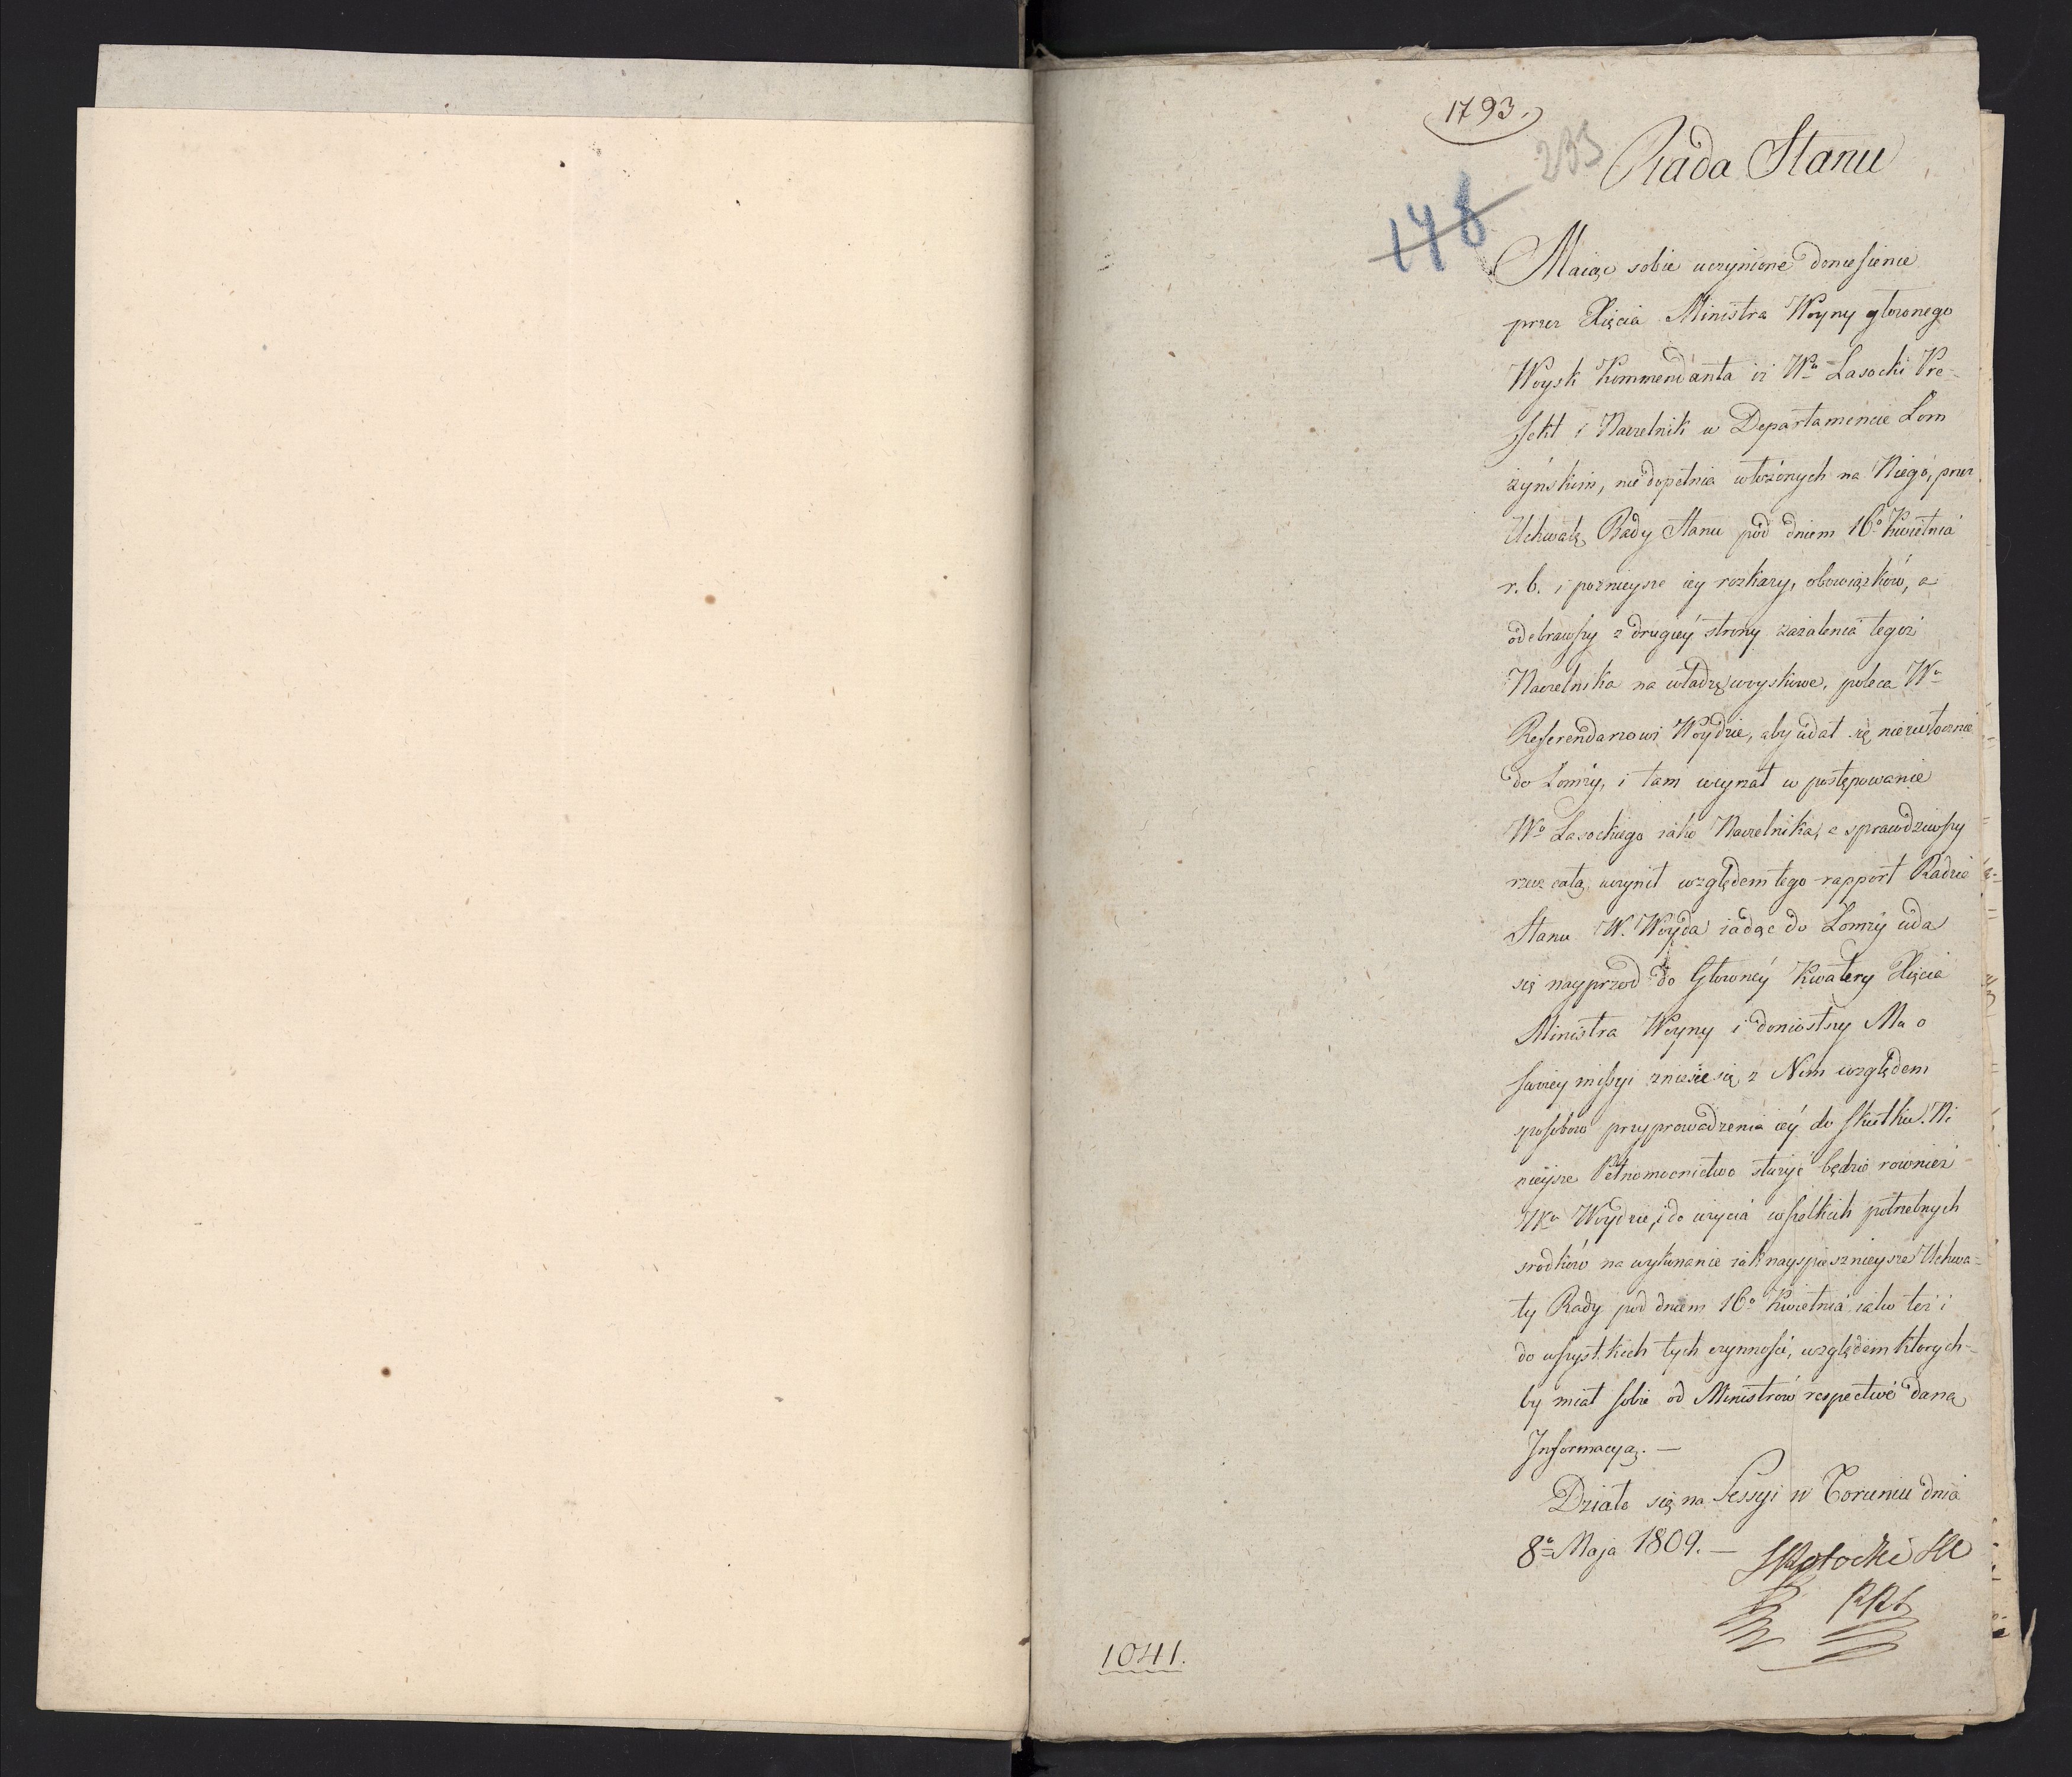 1793.
233
148
Rada Stanu
Maiąc sobie uczynione doniesienie
przez Xięcia Ministra Woyny głownego
Woysk Kommendanta iż Wny Lasocki Pre-
fekt i Naczelnik w Departamencie Łom
żyńskim, niedopełnia włożonych na Niego, przez
Uchwałę Rady Stanu pod dniem 16o Kwietnia
r. b. i poznieysze iey rozkazy, obowiązków, a
odebrawszy z drugiey strony zażalenia tegoż
Naczelnika na władzę woyskowe, poleca Wu
Referendarzowi Woydzie, aby udał się niezwłocznie
do Łomży, i tam weyrzał w postępowanie
Wo Lasockiego iako Naczelnika, a sprawdziwszy
rzecz całą, uczynił względem tego rapport Radzie
Stanu W. Woyda iadąc do Łomży uda
się nayprzod do Głowney Kwatery Xięcia
Ministra Woyny i doniosłszy Mu o
swoiey missyi zniesie się z Nim względem
sposobow przyprowadzenia iey do skutku. Ni
nieysze Pełnomocnictwo służyć będzie rownież
Wu Woydzie, i do użycia wszelkich potrzebnych
srodków na wykonanie iak nayspiesznieysze Uchwa-
ły Rady pod dniem 16o Kwietnia iako też i
do wszystkich tych czynności, względem ktorych-
by miał sobie od Ministrow respective daną
Informacyą. —
Działo się na Sessyi w Toruniu dnia
8o Maja 1809. —
SPotocki
1041.